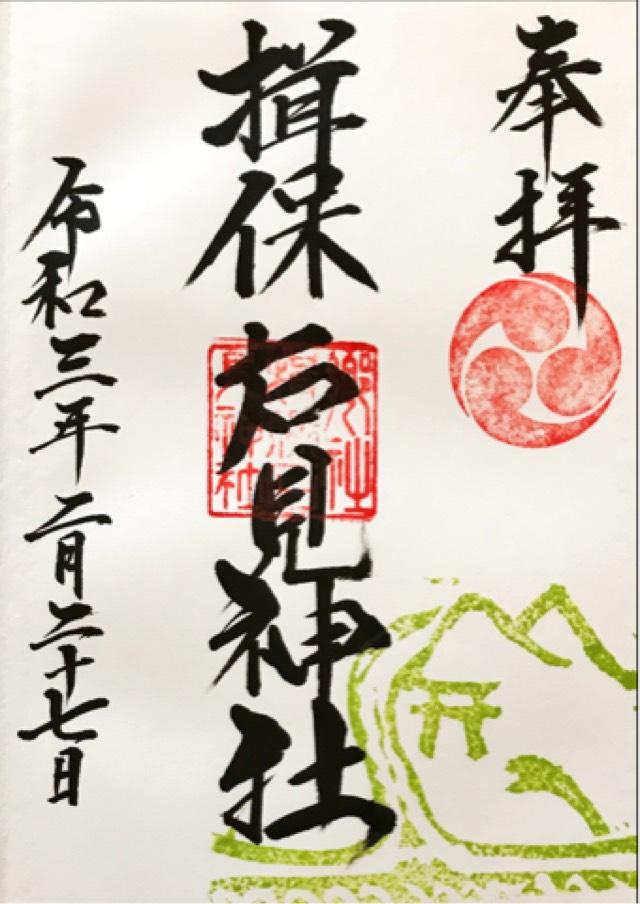 奉拝
揖保石見神社
令和三年二月二十七日